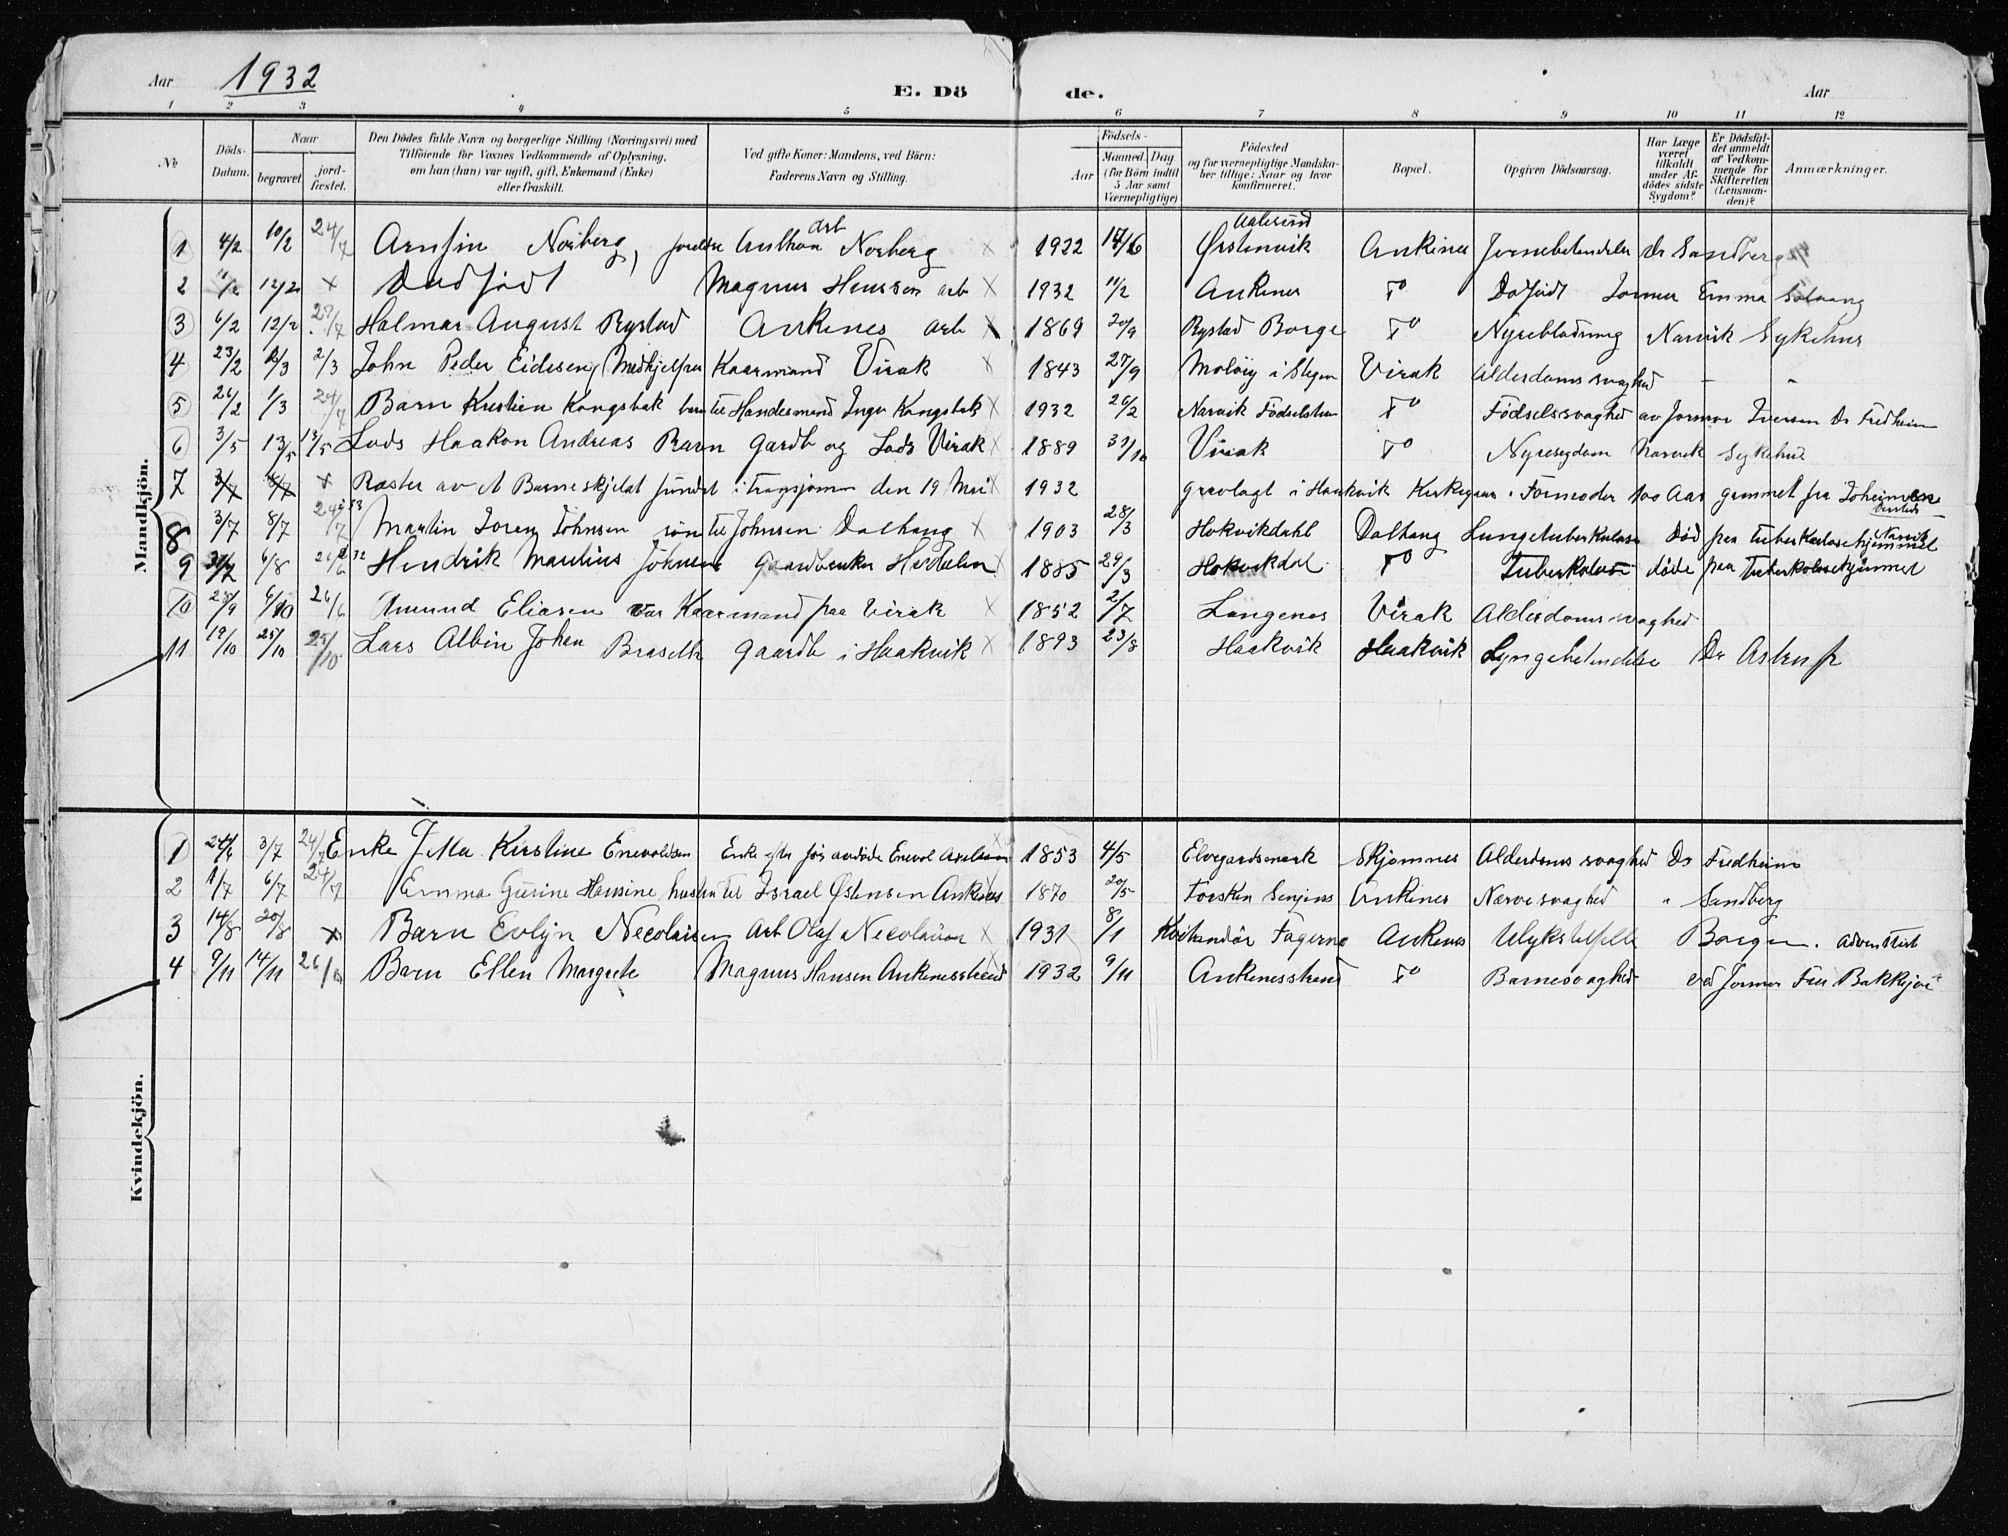 Aar 1932 E. Dö de. Aar
1 2 3 4 5 6 7 8 9 10 11 12
No Döds-Datum. Naar begravet. jord-fæstet. Den Dödes fulde Navn og borgerlige Stilling (Næringsvei) med Tilföiende for Voxnes Vedkommende af Oplysning, om han (hun) var ugift, gift, Enkemand (Enke) eller fraskilt. Ved gifte Koner: Mandens, ved Börn: Faderens Navn og Stilling. Födsels- Aar Maaned. Dag (for Börn indtil 5 Aar samt Værnepligtige) Födested og for værnepligtige Mandska-ber tillige: Naar og hvor konfirmeret. Bopæl. Opgiven Dödsaarsag. Har Læge været tilkaldt under Af-dödes sidste Sygdom? Er Dödsfal-det anmeldt af Vedkom-mende for Skifteretten (Lensman-den)? Anmærkninger.
Mandkjön.
1 4/2 10/2 24/7 Arnfin Norberg, Anthon arb Norberg x 1922 Aalesund Ørstenvik Ankenes Dr Sandberg
2 11/2 12/2 x Dødfødt Magnus Hansen arb x 1932 11/2 Ankenes Do Dødfødt Jormor Emma Solvang
3 6/2 12/2 Halmar August Rystad Ankenes arb x 1869 20/9 Rystad Borge Do Nyreblødning Narvik Sykehus
4 23/2 2/3 2/3 John Peder Eidesen, Kaarmand Virak x 1843 27/9 Moløig i Stegen Virak Alderdomssvaghed - "
5 26/2 1/3 24/7 Barn Kristien Kongsbak barn til Handesmand Inger Kongsbak x 1932 26/2 Narvik Do Fødselssvaghed av Jormor Iversen Dr Fredheim
6 3/5 13/5 13/5 Lods Haakon Andreas Ravn Gardb og Lods Virak x 1889 31/10 Virak Do Nyresygdom Narvik Sykehus
7 3/7 8/7 x Ræster av et Barneskjelet fundet i den 19 Mai x 1932 gravlagt i Haakvik Kirkegaar. Formoder 100 Aar gammel fra
8 3/7 8/7 24/7 Martin Johnsen søn til Johnsen Dalhaug x 1903 28/3 Hokvikdahl Dalhaug Lungetuberkulose Død paa Tuberkulosehjemmet Narvik
9 31/7 6/8 26/6 32 Hendrik Mautius Johnsen Gaardbruker x 1885 29/3 Hokvikdal Do Tuberkolose døde paa Tuberkolosehjemmet
10 28/9 6/10 26/6 Amund Eliasen var Kaarmand paa Virak x 1852 2/7 Langenes Virak Alderdomssvaghed
11 19/10 25/10 25/10 Lars Albin Johan Gaardb i Haakvik x 1893 23/8 Haakvik Haakvik Lyngebetendelse Dr
Kvindekjön.
1 3/7 24/7 Enke Kirstine Enevoldsen Enke efter før avdøde Enevol 1853 4/5 Elvegardsmark Skjomnes Alderdomssvaghed Dr Fredheim
2 1/7 6/7 24/7 Emma Gurine Hansine hustru til Israel Østensen Ankenes 1870 20/5 Torsken Senjens Ankenes Nærvesvaghed " Sandberg
3 14/8 20/8 x Barn Evlyn Necolaisen Arb Olaf Necolaisen x 1931 8/1 Fagernes Ankenes Ulykstelfelle Borgen. adventist
4 9/11 14/11 Barn Ellen Margrete Magnus Hansen Ankenesstrand 1932 9/11 Ankenesstrand Do Barnesvaghed ved Jormor Bakkejor